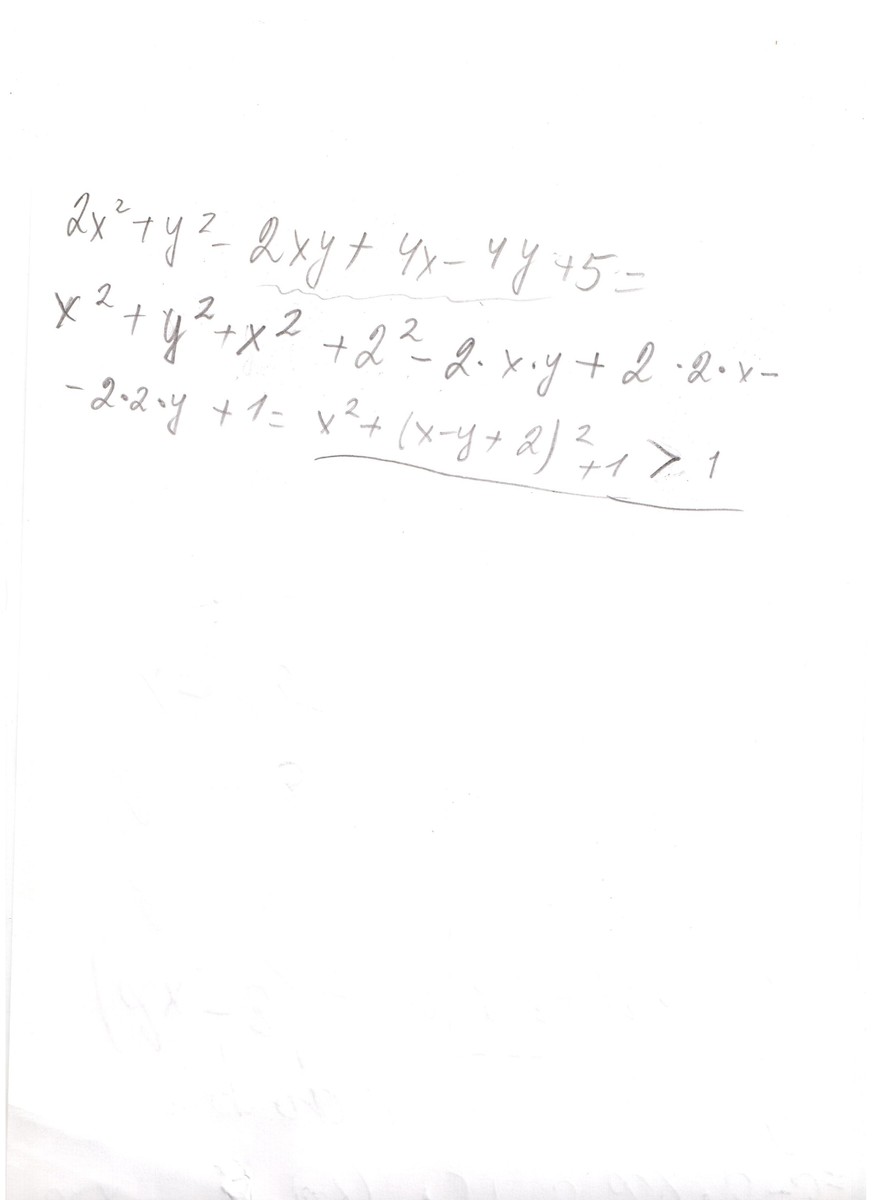 2x² + y² - 2xy + 4x - 4y + 5 =
x² + y² + x² + 2² - 2·x·y + 2·2·x -
- 2·2·y + 1 = x² + (x-y+2)² + 1 > 1